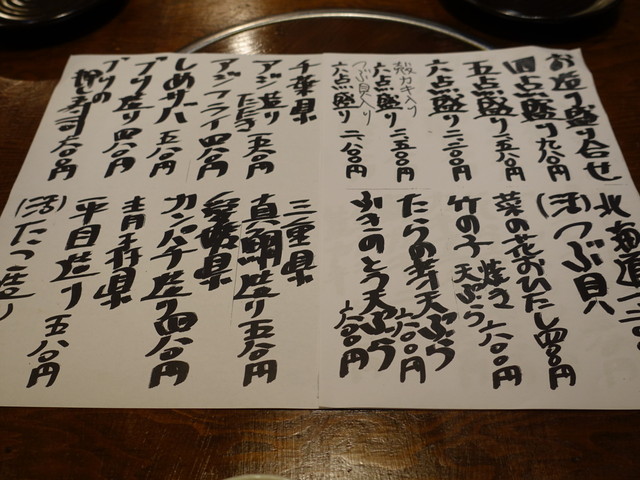 お造り盛り合せ
四点盛り 九八〇円
五点盛り 一五八〇円
六点盛り 二二〇〇円
殻カキ入り
六点盛り 二五〇〇円
つぶ貝入り
六点盛り 二八〇〇円
千葉県
アジ造り
たたき 五八〇円
アジフライ 四八〇円
しめサバ 五八〇円
ブリ造り 四八〇円
ブリの
押し寿司 六八〇円
北海道
(活)つぶ貝
菜の花おひたし 四八〇円
竹の子 天ぷら
焼き 六八〇円
たらの芽天ぷら 六八〇円
ふきのとう天ぷら 六八〇円
三重県
真鯛造り 五八〇円
愛媛県
カンパチ造り 四八〇円
青森県
平目造り 五八〇円
(活)たこ造り